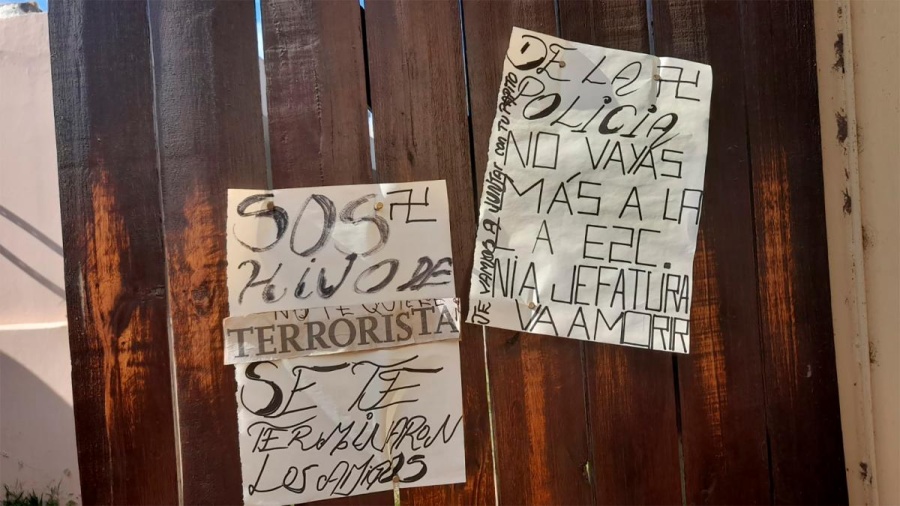 SOS
HIJO DE
NO TE QUIERE
TERRORISTA
SE TE
TERMINARON
LOS AMIGOS
DE LA
POLICIA
NO VAYAS
MÁS A LA
A EZC.
NI A JEFATURA
VA A MORR
TE VAMOS A JUNTAR CON TU PAPITO